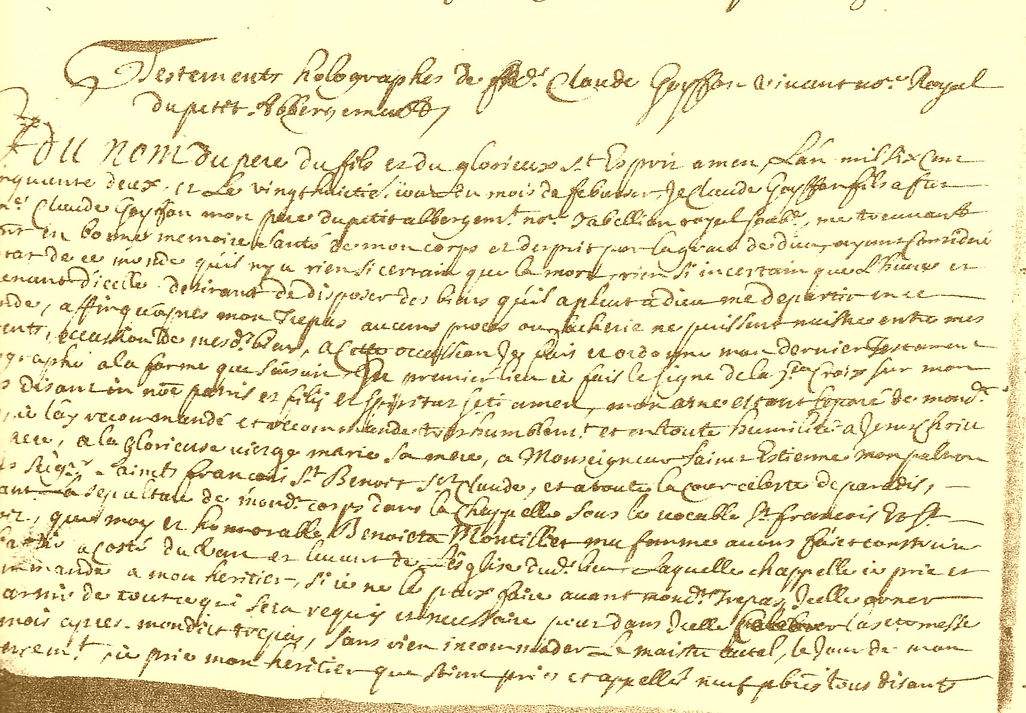 Testements holographes de feu Sr Claude Goyffon vivant nore Royal
du petit Abbergement
AU NOM du pere du fils et du glorieux St Esprit amen, L'an mil six cent
cinquante deux et Le vingthuictie jour du mois de febvrier, Je Claude Goyffon fils a feu
Claude Goyffon mon pere du petit albergemt nore Tabellion royal soubne, me treuvant
en bonne memoire santé de mon corps et desprit par la grace de dieu, ayant consideré
de ce monde qu'il n'y a rien si certain que la mort, rien si incertain que l'heure et
dicelle desirant de disposer des biens qu'il a pleut a dieu me departir en ce
affin qu'apres mon Trepas aucuns proces ou facherie ne puissent naistre entre mes
occasion de mesd. biens, a cette occasion Je fais et ordonne mon dernier Testament
a la forme que s'ensuit, En premier lieu ie fais le signe de la Ste Croix sur mon
Disant in noe patris et filij et spiritus sti amen, mon ame estant separé de mond.
ie l'ay recommandé et recommande tres humblemt et en toute humilité a Jesus Christ
a la glorieuse vierge marie sa mere, a Monseigneur Sainct Estienne mon patron
Saincts françois St Benoit St Claude, et a toute la cour celeste de paradis,
la sepulture de mond. corps dans la Chappelle sous le vocable St françois et St
que moy et honnorable Benoicte Montillet ma femme avons faict construire
a costé du et de L'esglise dud. lieu Laquelle chappelle ie prie et
a mon heritier, si ie ne le peux faire avant mond. Trepas, Icelle orner
de tout ce qui sera requis et necessaire pour dans Icelle la se messe
mois apres mondict trepas, sans rien incommoder Le maistre autel, le Jour de mon
ie prie mon heritier que soient priés et appellés neuf pbres tous disants